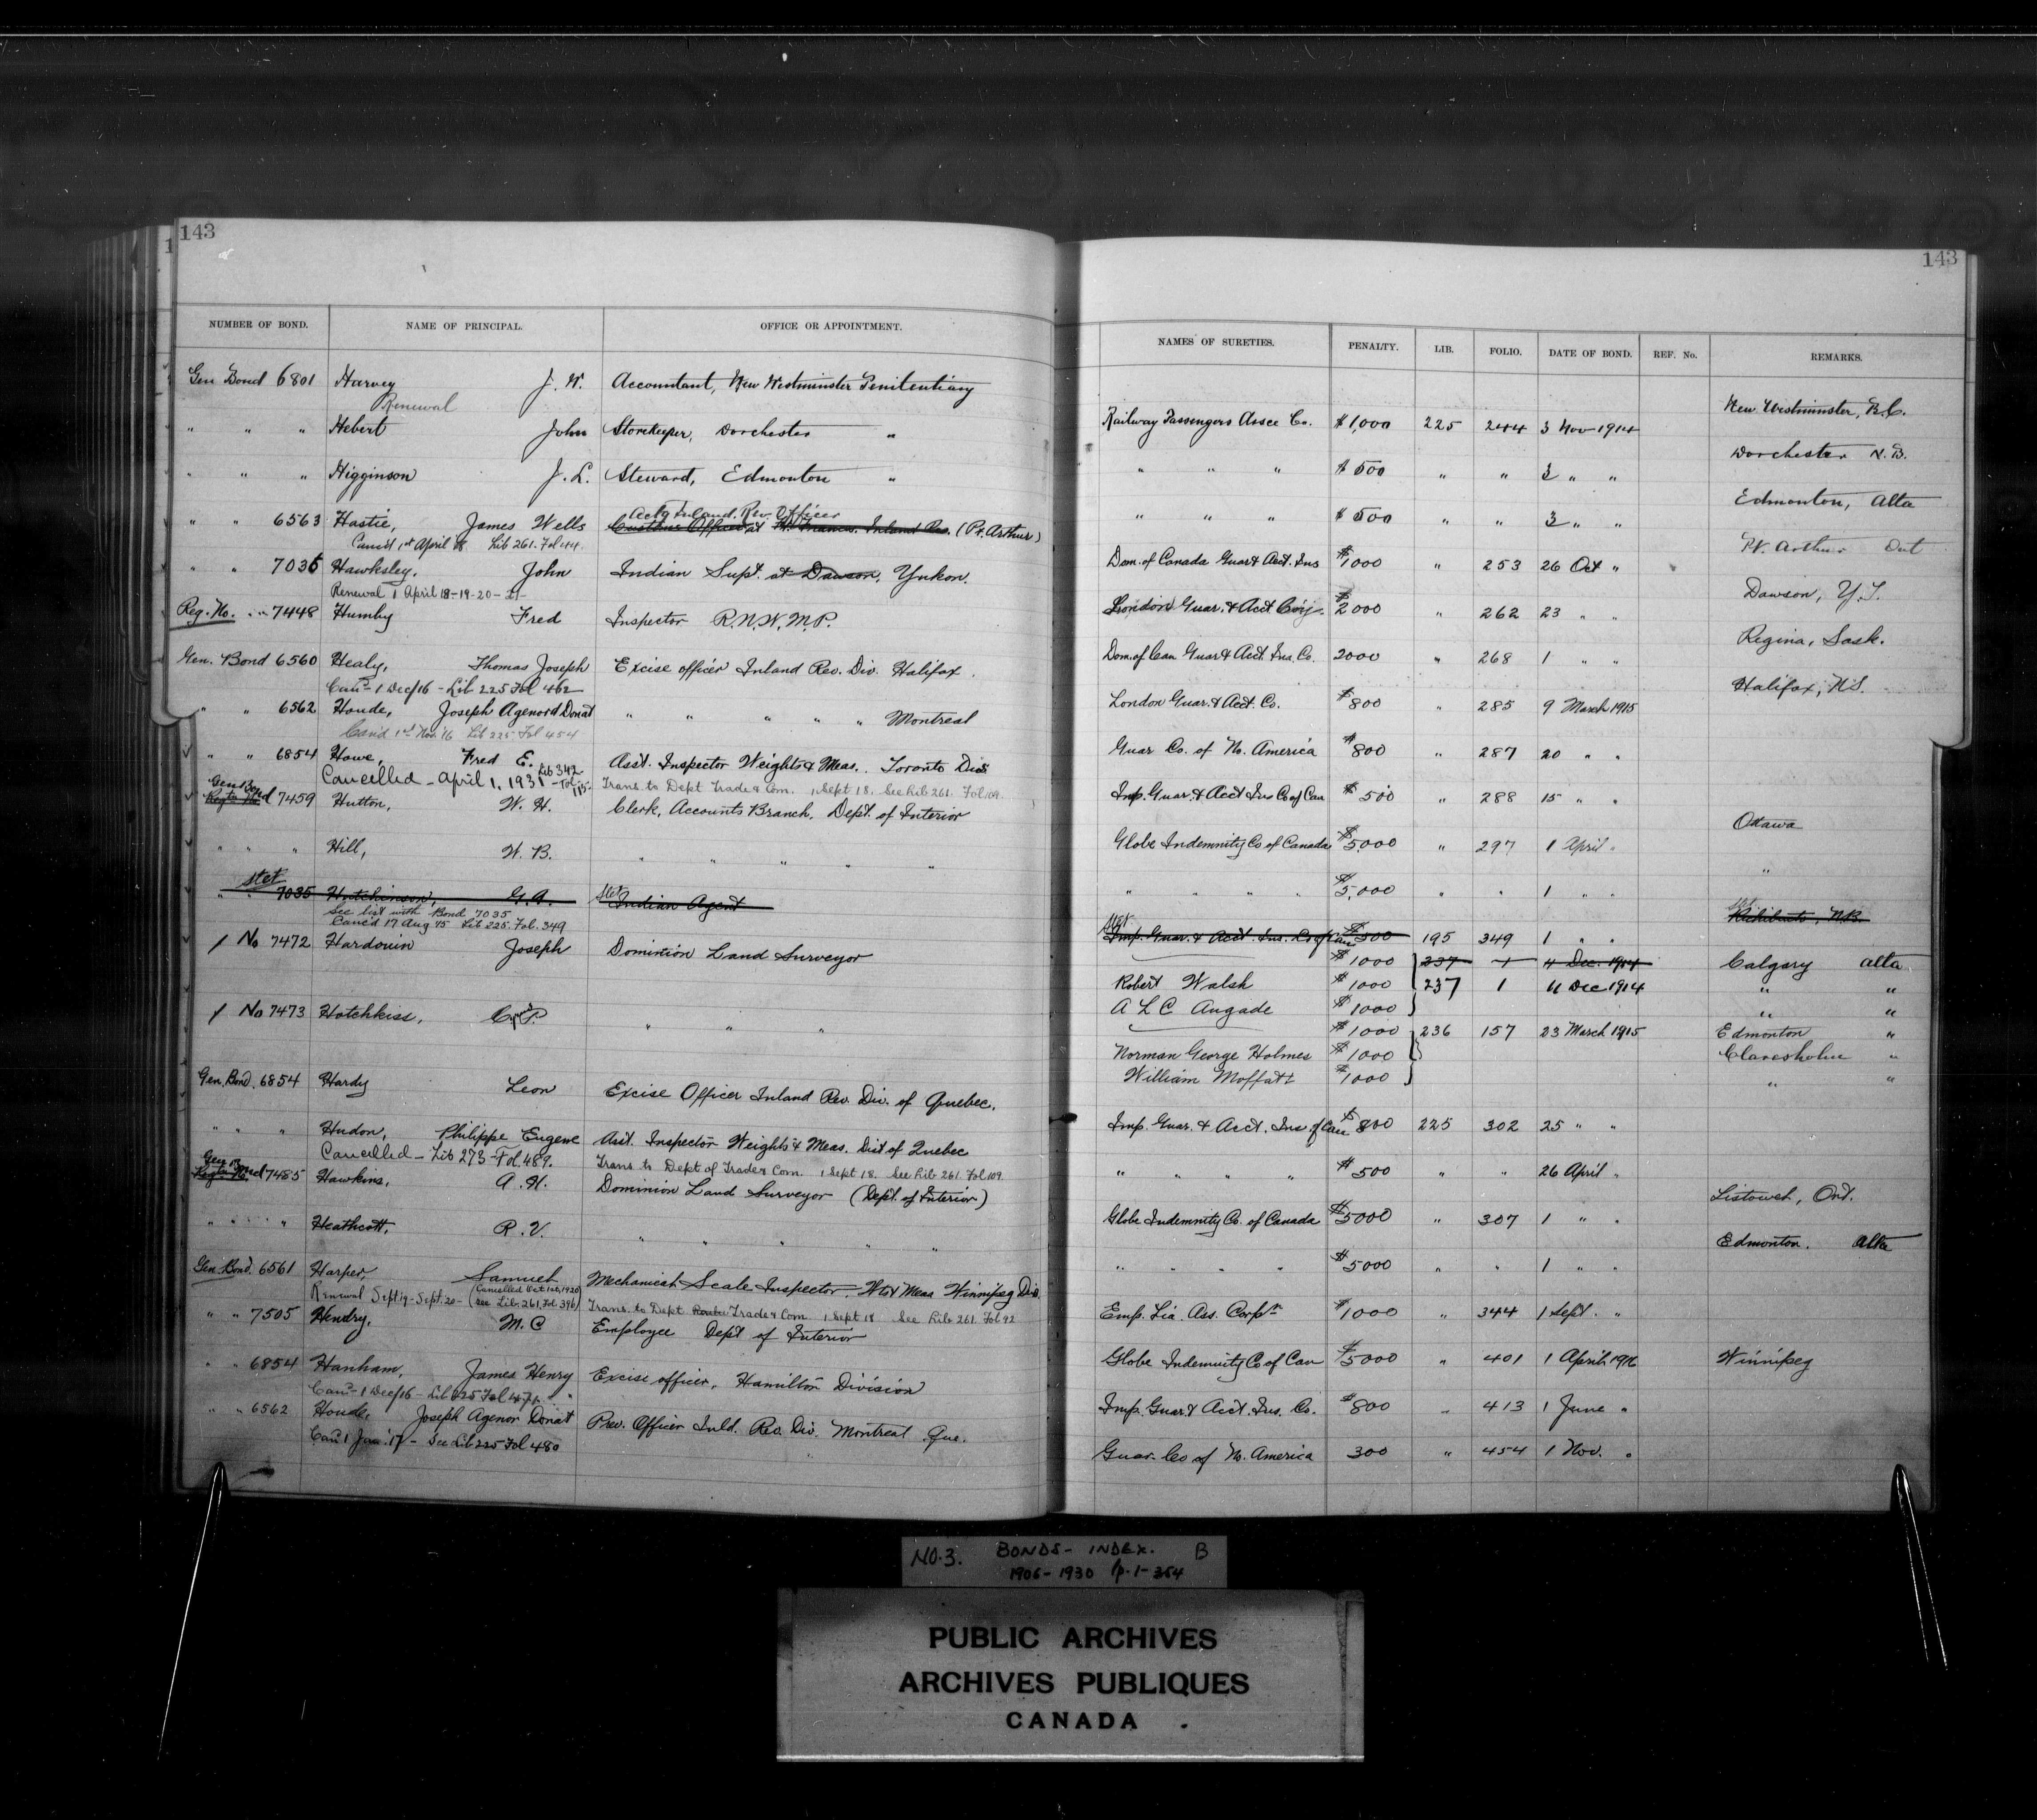 143
NUMBER OF BOND. NAME OF PRINCIPAL. OFFICE OR APPOINTMENT.
Gen Bond 6801 Harvey J. W. Accountant, New Westminster Penitentiary
Renewal
" " " Hebert John Storekeeper, Dorchester "
" " " Higginson J. L. Steward, Edmonton "
Actg Inland. Rev. Officer
" " 6563 Hastie, James Wells Customs Officer at Ft. Frances. Inland Rev. (Pt. Arthur)
Canc'd 1st April 18 Lib 261. Fol 44.
" " 7035 Hawksley, John Indian Supt. at Dawson, Yukon.
Renewal 1 April 18-19-20-21-
Reg. No. " " 7448 Humby Fred Inspector R.N.W.M.P.
Gen. Bond 6560 Healy, Thomas Joseph Excise officer Inland Rev. Div. Halifax.
Canc'd - 1 Dec/16 - Lib 225 Fol 462
" " 6562 Houde, Joseph Agenord Donat " " " " " Montreal
Canc'd 1st Nov. 16 Lib 225 Fol 454
" " 6854 Howe, Fred E. Asst. Inspector Weights & Meas. Toronto Div.
Cancelled - April 1, 1931 - Lib 342 Fol. 115- Trans. to Dept Trade & Com. 1 Sept 18. See Lib 261. Fol 109.
Gen Bond
7459 Hutton, W. H. Clerk, Accounts Branch, Dept. of Interior
" " " Hill, W. B. " " " " "
stet
" " 7035 Hutchinson, G. A. stet Indian Agent
See list with Bond 7035
Canc'd 17 Aug 45 Lib 225. Fol. 349
/ No 7472 Hardouin Joseph Dominion Land Surveyor
/ No 7473 Hotchkiss, P. " " "
Gen. Bond 6854 Hardy Leon Excise Officer Inland Rev. Div. of Quebec.
" " " Hudon, Philippe Eugene Asst. Inspector Weights & Meas. Dist of Quebec
Cancelled - Lib 273 - Fol. 489. Trans to Dept of Trade & Com. 1 Sept 18. See Lib 261. Fol 109
Gen Bond
7485 Hawkins, A. H. Dominion Land Surveyor (Dept. of Interior)
" " " Heathcott, R. V. " " " " "
Gen. Bond. 6561 Harper, Samuel Mechanical Scale Inspector. Wts & Meas Winnipeg Div.
Renewal Sept 19 - Sept. 20 - (Cancelled Oct 1st, 1920 see Lib. 261, Fol 396) Trans. to Dept Trade & Com 1 Sept 18 See Lib 261 Fol 92
" " 7505 Hendry, M. C Employee Dept of Interior
" " 6854 Hanham, James Henry Excise officer, Hamilton Division
Canc'd - 1 Dec/16 - Lib 225 Fol 474
" " 6562 Houde, Joseph Agenor Donat Prev. Officer Inld. Rev. Div. Montreal Que.
Canc'd 1 Jan. '17 - See Lib 225 Fol 480
143
NAMES OF SURETIES. PENALTY. LIB. FOLIO. DATE OF BOND. REF. No. REMARKS.
Railway Passengers Assce Co. $1,000 225 244 3 Nov 1914 New Westminster, B.C.
" " " $500 " " 3 " " Dorchester N.B.
" " " $500 " " 3 " " Edmonton, Alta
Dom. of Canada Guar & Acct. Ins $1000 " 253 26 Oct " Pt. Arthur Ont
London Guar. & Acct Corp. $2000 " 262 23 " " Dawson, Y.T.
Dom. of Can Guar & Acct. Ins. Co. 2000 " 268 1 " " Regina, Sask.
London Guar. & Acct. Co. $800 " 285 9 March 1915 Halifax, N.S.
Guar Co. of N. America $800 " 287 20 " "
Imp. Guar. & Acct Ins Co of Can $500 " 288 15 " "
Globe Indemnity Co of Canada $5,000 " 297 1 April " Ottawa
" " " " $5,000 " " 1 " " "
stet Imp. Guar. & Acct. Ins. Co of Can $500 195 349 1 " " stet Richibucto, N.B.
$1000 237 1 4 Dec. 1914 Calgary Alta
Robert Walsh $1000 237 1 11 Dec 1914 " "
A L C Angade $1000 " "
$1000 236 157 23 March 1915 Edmonton "
Norman George Holmes $1000 Claresholm "
William Moffatt $1000 " "
Imp. Guar. & Acct. Ins. of Can $800 225 302 25 " "
" " " " $500 " " 26 April "
Globe Indemnity Co. of Canada $5000 " 307 1 " " Listowel, Ont.
" " " " $5000 " " 1 " " Edmonton. Alta
Emp. Lia. Ass. Corpn $1000 " 344 1 Sept. "
Globe Indemnity Co of Can $5000 " 401 1 April 1916 Winnipeg
Imp. Guar & Acct. Ins. Co. $800 " 413 1 June "
Guar. Co of N. America 300 " 454 1 Nov. "
NO. 3. BONDS - INDEX. B
1906-1930 p. 1-354
PUBLIC ARCHIVES
ARCHIVES PUBLIQUES
CANADA